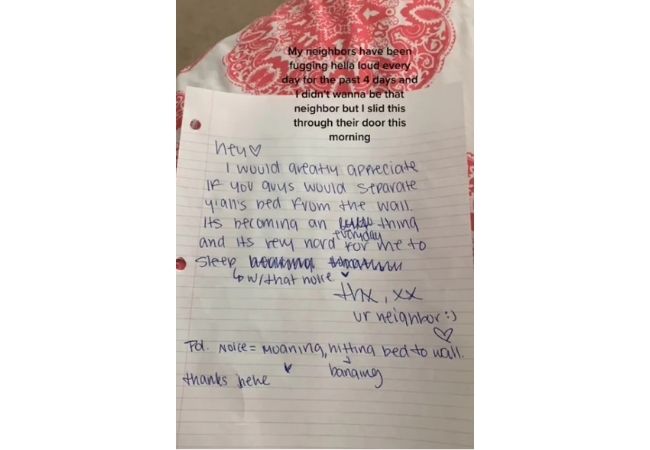 My neighbors have been
fugging hella loud every
day for the past 4 days and
I didn't wanna be that
neighbor but I slid this
through their door this
morning
hey♡
I would greatly appreciate
if you guys would separate
y'alls bed from the wall.
its becoming an everyday thing
and its very hard for me to
sleep
↳ w/that noise
thx, xx
ur neighbor :)
♡
Pd. Noice = Moaning, hitting bed to wall.
↳ banging
thanks hehe